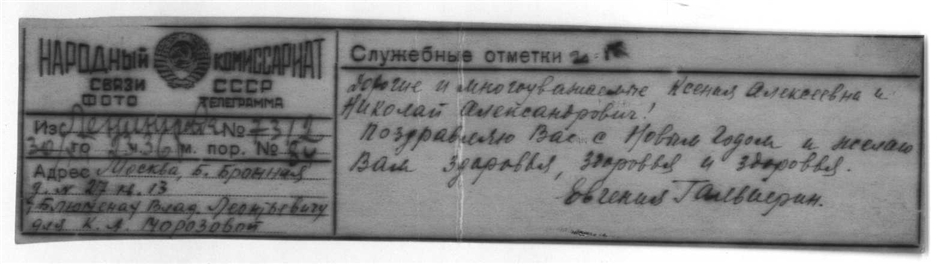 НАРОДНЫЙ КОМИССАРИАТ
СВЯЗИ СССР
ФОТО ТЕЛЕГРАММА
Из Ленинграда № 231/2
30/ го 2 ч 30 м. пор. №
Адрес Москва, Б. Бронная
д. № 27 кв. 13
Блюменау Влад. Леонтьевичу
для К. А. Морозовой
Служебные отметки
Дорогие и многоуважаемые Ксения Алексеевна и
Николай Александрович!
Поздравляю Вас с Новым Годом и желаю
Вам здоровья, здоровья и здоровья.
Евгения Гальперин.